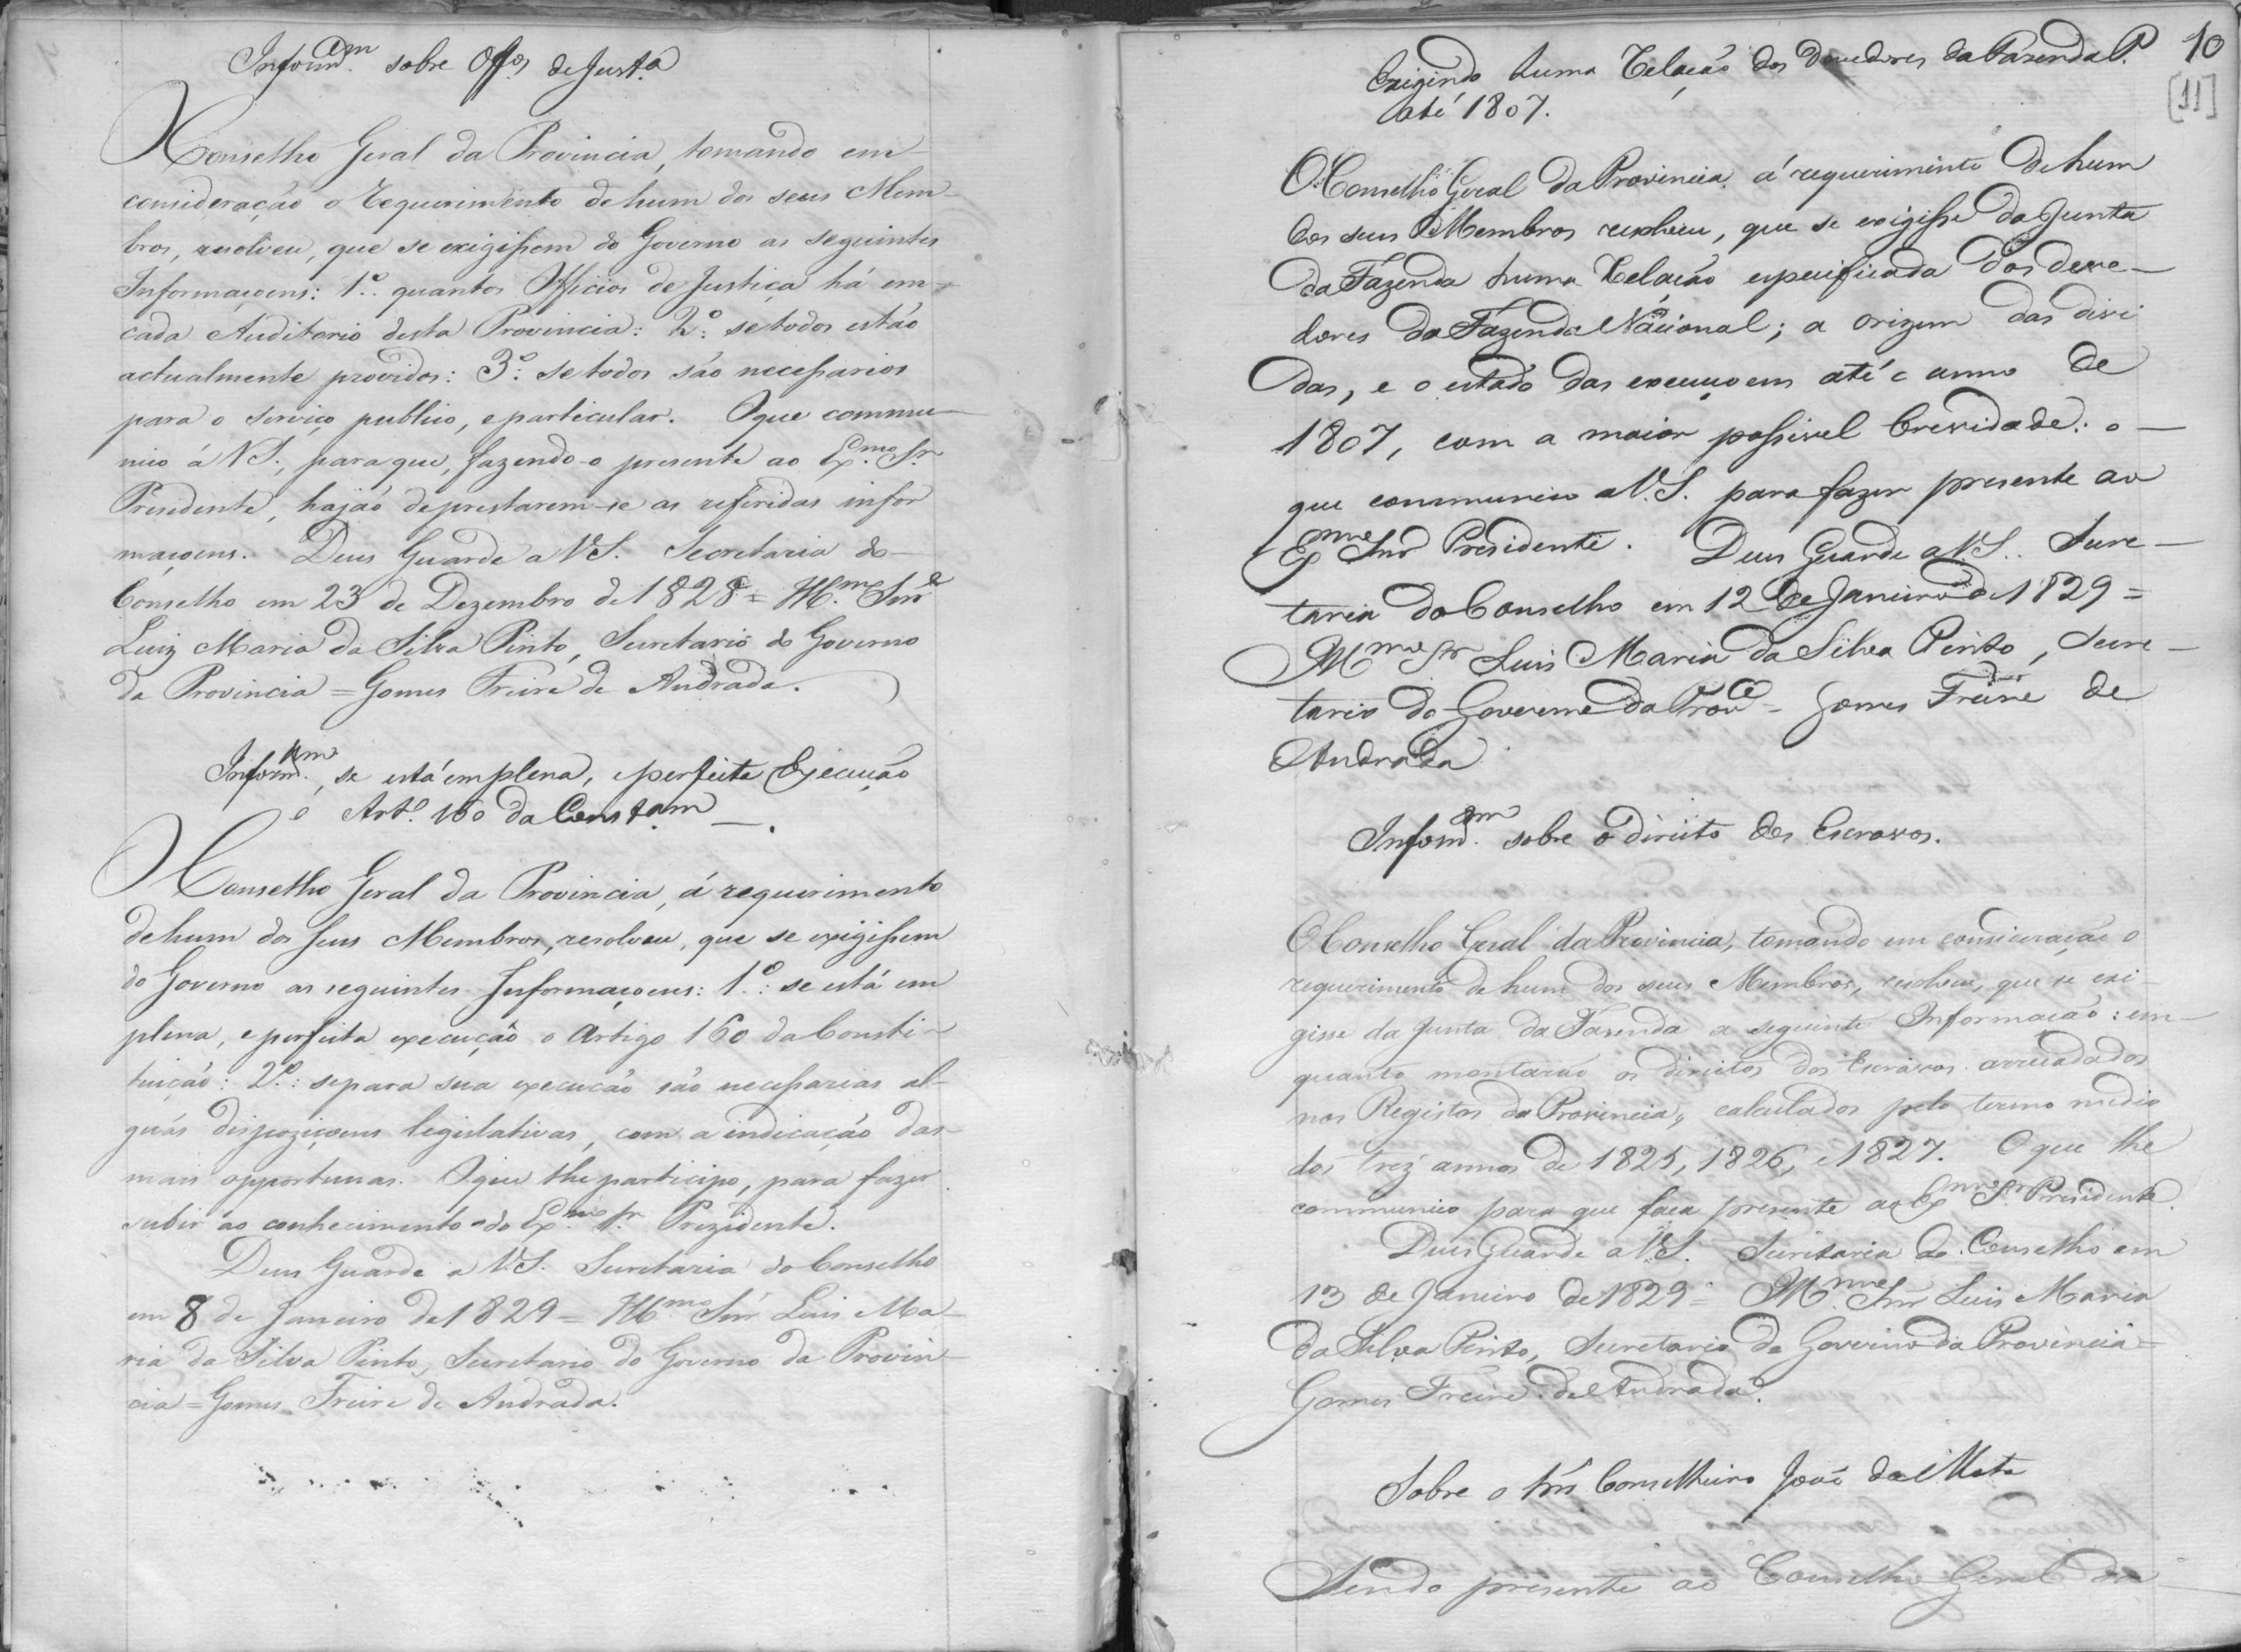 Inform.am sobre Off.os de Just.a
O Conselho Geral da Provincia, tomando em
consideração o Requerimento de hum dos seus Mem-
bros, resolveu, que se exigissem do Governo as seguintes
Informaçoens: 1º. quantos Officios de Justiça há em
cada Auditorio desta Provincia: 2º: se todos estão
actualmente providos: 3º: se todos são necessarios
para o serviço publico, e particular. O que commu-
nico á V.S., para que, fazendo-o presente ao Ex.mo Sr.
Presidente, hajão de prestarem-se as referidas infor
maçoens. Deus Guarde a V.S. Secretaria do
Conselho em 23 de Dezembro de 1828 = Ill.mo Snr
Luiz Maria da Silva Pinto, Secretario do Governo
da Provincia = Gomes Freire de Andrada.
Inform.am, se está em plena, e perfeita Execução
o Art.º 160 da Const.am
O Conselho Geral da Provincia, á requerimento
de hum dos seus Membros, resolveu, que se exigissem
do Governo as seguintes Informaçoens: 1º.: se está em
plena, e perfeita execução o Artigo 160 da Consti-
tuição: 2º.: se para sua execução são necessarias al-
guãs dispoziçoens legislativas, com a indicação das
mais opportunas. O que lhe participo, para fazer
subir ao conhecimento do Ex.mo Sr. Prezidente.
Deus Guarde a V.S. Secretaria do Conselho
em 8 de Janeiro de 1829 = Ill.mo Snr Luis Ma-
ria da Silva Pinto, Secretario do Governo da Provin-
cia = Gomes Freire de Andrada.
10
[11]
Exigindo huma Relação dos Devedores da Fazenda P.
até 1807.
O Conselho Geral da Provincia á requerimento de hum
dos seus Membros resolveu, que se exigisse da Junta
da Fazenda huma Relação especificada dos deve-
dores da Fazenda Nacional; a origem das divi
das, e o estado das execuçoens até o anno de
1807, com a maior possivel brevidade: o
que communico a V.S. para fazer presente ao
Ex.mo Snr Presidente. Deus Guarde a V.S. Secre-
taria do Conselho em 12 de Janeiro de 1829 =
Ill.mo Sr Luis Maria da Silva Pinto, Secre-
tario do Governo da Prov.ce = Gomes Freire de
Andrada
Inform.am sobre o direito dos Escravos.
O Conselho Geral da Provincia, tomando em consideração o
requerimento de hum dos seus Membros, resolveu, que se exi-
gisse da Junta da Fazenda a seguinte Informação: em
quanto montarão os direitos dos Escravos arrecadados
nos Registos da Provincia, calculados pelo termo medio
dos trez annos de 1825, 1826, e 1827. O que lhe
communico para que faça presente ao Ex.mo Sr. Presidente.
Deus Guarde a V.S. Secretaria do Conselho em
13 de Janeiro de 1829 = Ill.mo Snr Luis Maria
da Silva Pinto, Secretario do Governo da Provincia =
Gomes Freire de Andrada.
Sobre o Conselheiro José da Mota
Sendo presente ao Conselho Geral da